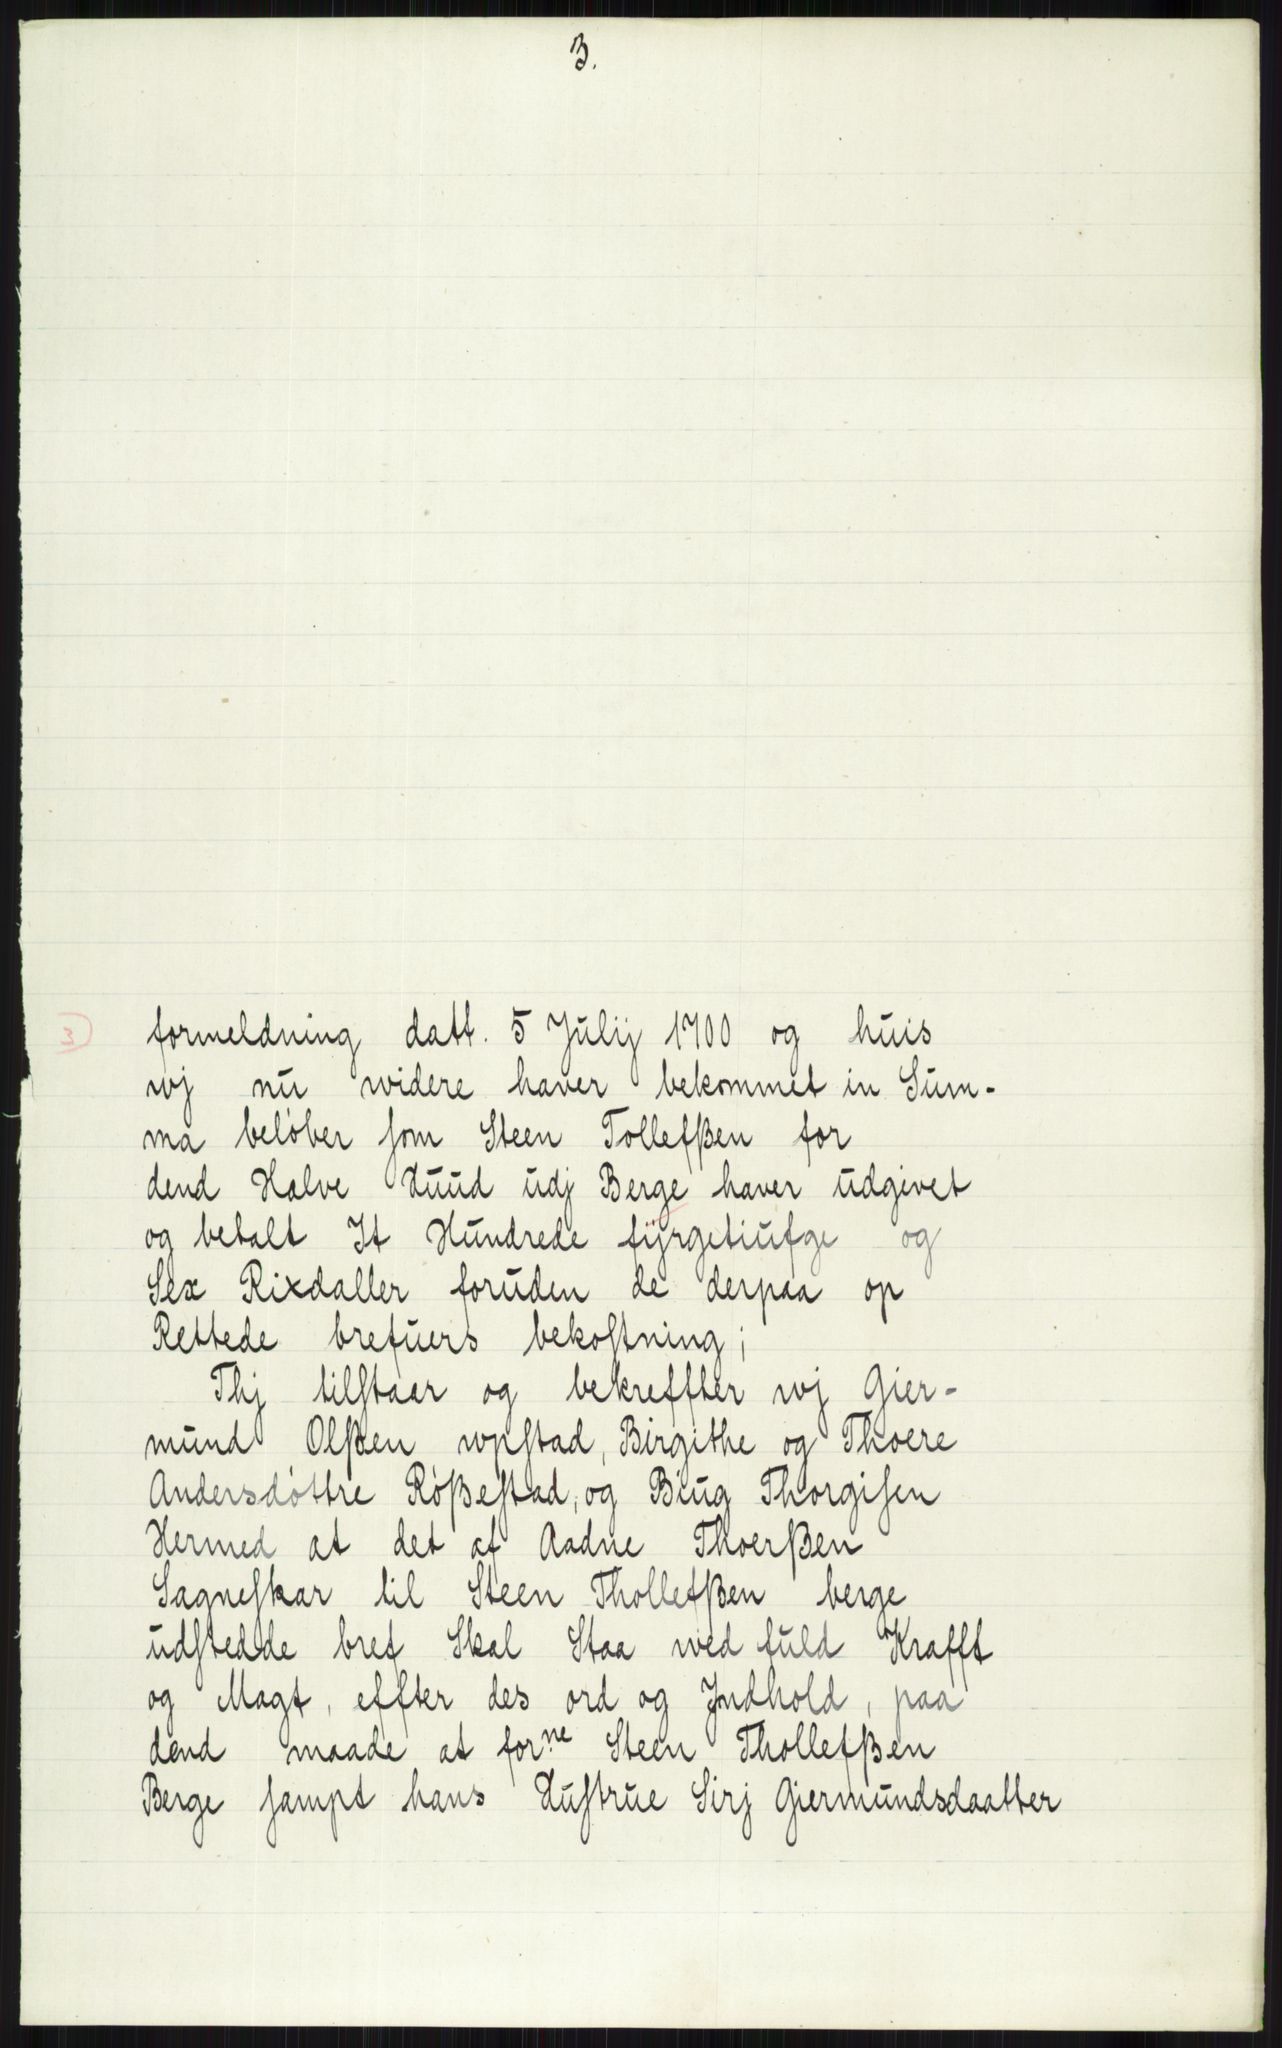 3.
3) formeldning datt. 5 Julij 1700 og huis
wj nu widere haver bekommet in Sum-
ma belöber som Steen Tollefßen for
dend Halve Huud udj Berge haver udgivet
og betalt It Hundrede fijrgetiufge og
Sex Rixdaller foruden de derpaa op
Rettede brefuers bekostning;
Thj tilstaar og bekreffter wj Gier-
mund Olßen wpstad, Birgithe og Thoere
Andersdöttre Rößestad, og Biug Thorgisen
Hermed at det af Aadne Thoerßen
Sagneskar til Steen Thollefßen berge
udstedde bref Skal Staa wed fuld Krafft
og Magt, effter des ord og Jndhold, paa
dend maade at forne Steen Thollefßen
Berge sampt hans Hustrue Sirj Giermundsdaatter